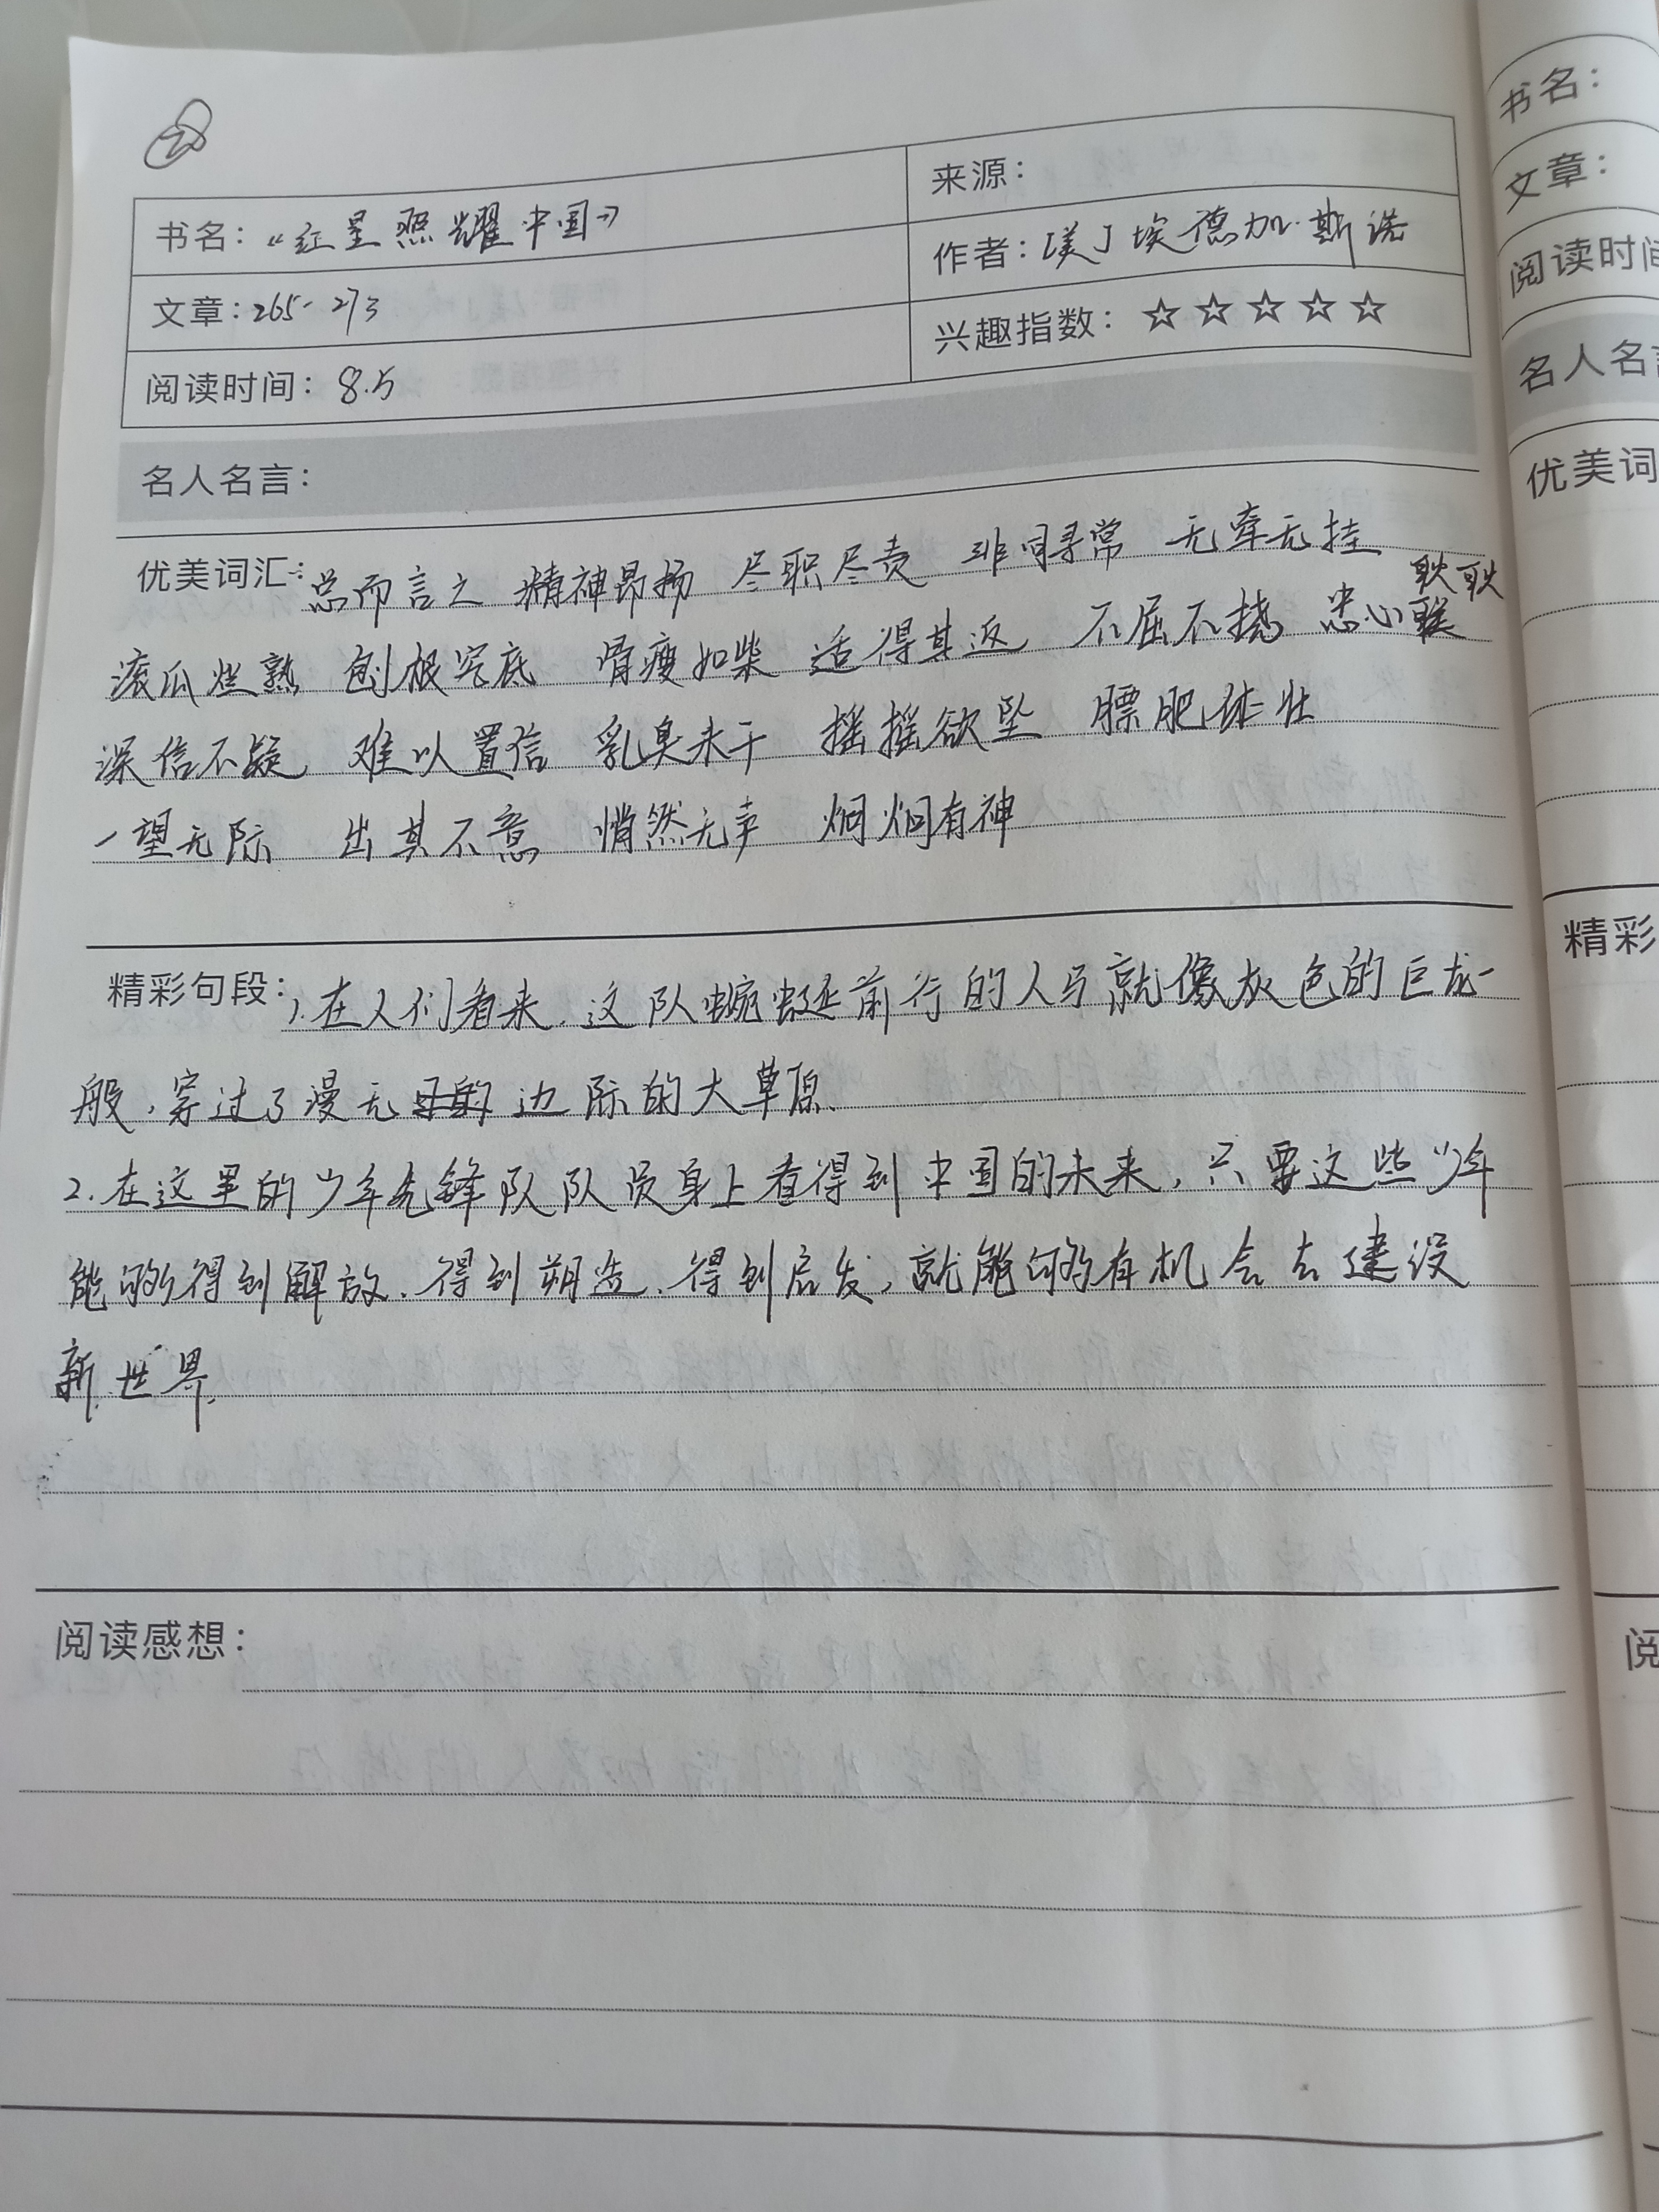 书名：《红星照耀中国》
来源：
作者：[美]埃德加·斯诺
文章：265-273
兴趣指数：☆☆☆☆☆
阅读时间：8.5
名人名言：
优美词汇：总而言之 精神昂扬 尽职尽责 非同寻常 无牵无挂
滚瓜烂熟 刨根究底 骨瘦如柴 适得其返 不屈不挠 忠心耿耿
深信不疑 难以置信 乳臭未干 摇摇欲坠 膘肥体壮
一望无际 出其不意 悄然无声 炯炯有神
精彩句段：1.在人们看来，这队蜿蜒前行的人马就像灰色的巨龙一
般，穿过了漫无边际的大草原.
2.在这里的少年先锋队队员身上看得到中国的未来，只要这些少年
能够得到解放、得到塑造、得到启发，就能够有机会去建设
新世界.
阅读感想：
书名：
文章：
阅读时间
名人名言
优美词
精彩
阅